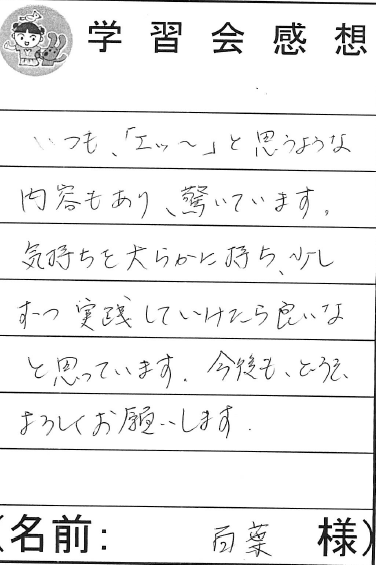 学習会感想
いつも、「エッ～」と思うような
内容もあり、驚いています。
気持ちを大らかに持ち、少し
ずつ実践していけたら良いな
と思っています。今後も、どうぞ、
よろしくお願いします.
(名前: 百葉 様)